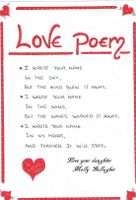 LOVE POEM
I WROTE YOUR NAME
IN THE SKY,
BUT THE WIND BLEW IT AWAY.
I WROTE YOUR NAME
IN THE SAND,
BUT THE WAVES WASHED IT AWAY.
I WROTE YOUR NAME
IN MY HEART,
AND FOREVER IT WILL STAY.
Love your daughter
Molly Gallagher